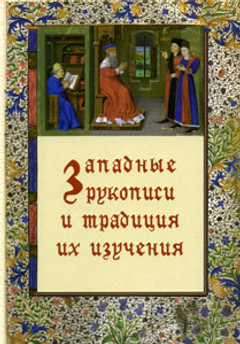 Западные
рукописи
и традиция
их изучения